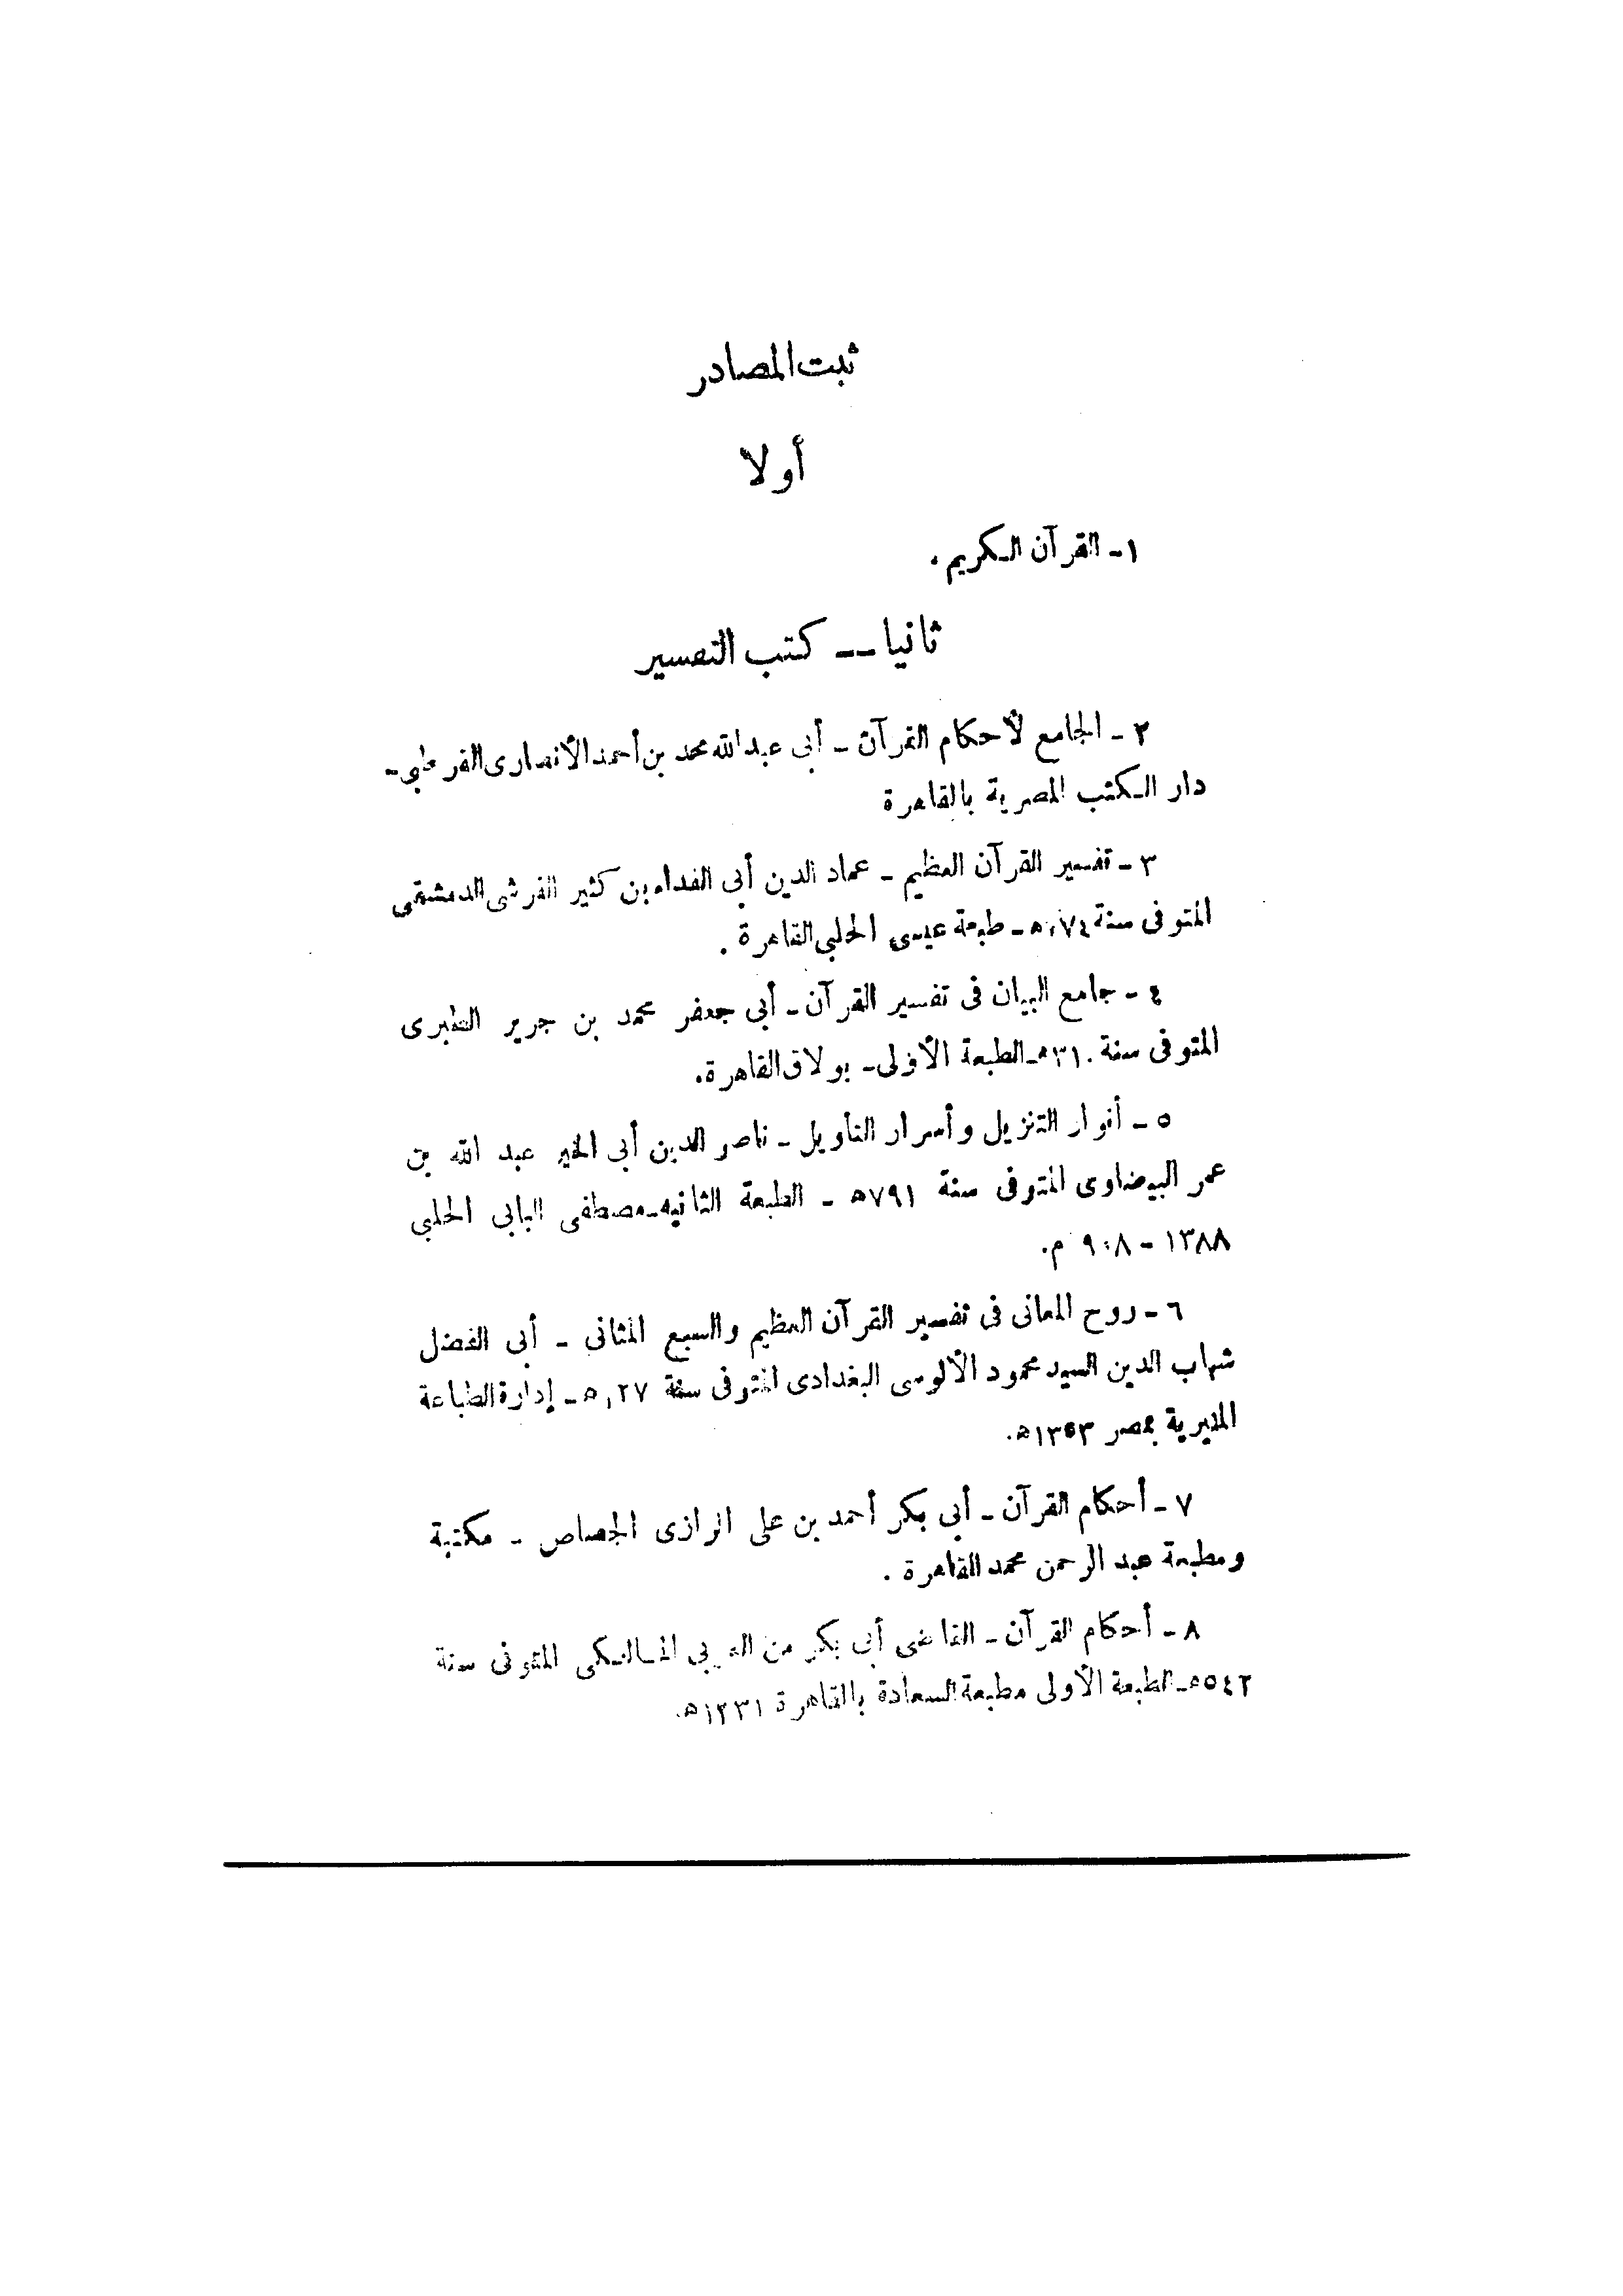 ثبت المصادر
أولا
١ - القرآن الكريم .
ثانيا -- كتب التفسير
٢ - الجامع لأحكام القرآن - أبى عبد الله محمد بن أحمد الأنصارى القرطبى -
دار الكتب المصرية بالقاهرة
٣ - تفسير القرآن العظيم - عماد الدين أبى الفداء بن كثير القرشى الدمشقى
المتوفى سنة - طبعة عيسى الحلبى القاهرة .
٤ - جامع البيان فى تفسير القرآن - أبى جعفر محمد بن جرير الطبرى
المتوفى سنة ٣١٠هـ - الطبعة الأولى - بولاق القاهرة .
٥ - أنوار التنزيل وأسرار التأويل - ناصر الدين أبى الخير عبد الله بن
عمر البيضاوى المتوفى سنة ٧٩١هـ - الطبعة الثانية - مصطفى البابى الحلبى
١٣٨٨ - م .
٦ - روح المعانى فى تفسير القرآن العظيم والسبع المثانى - أبى الفضل
شهاب الدين السيد محمود الألوسى البغدادى المتوفى سنة - إدارة الطباعة
المنيرية بمصر
٧ - أحكام القرآن - أبى بكر أحمد بن على الرازى الجصاص - مكتبة
ومطبعة عبد الرحمن محمد القاهرة .
٨ - أحكام القرآن - القاضى أبى بكر من العربى المالكى المتوفى سنة
٥٤٢هـ - الطبعة الأولى مطبعة السعادة بالقاهرة ١٣٣١هـ .